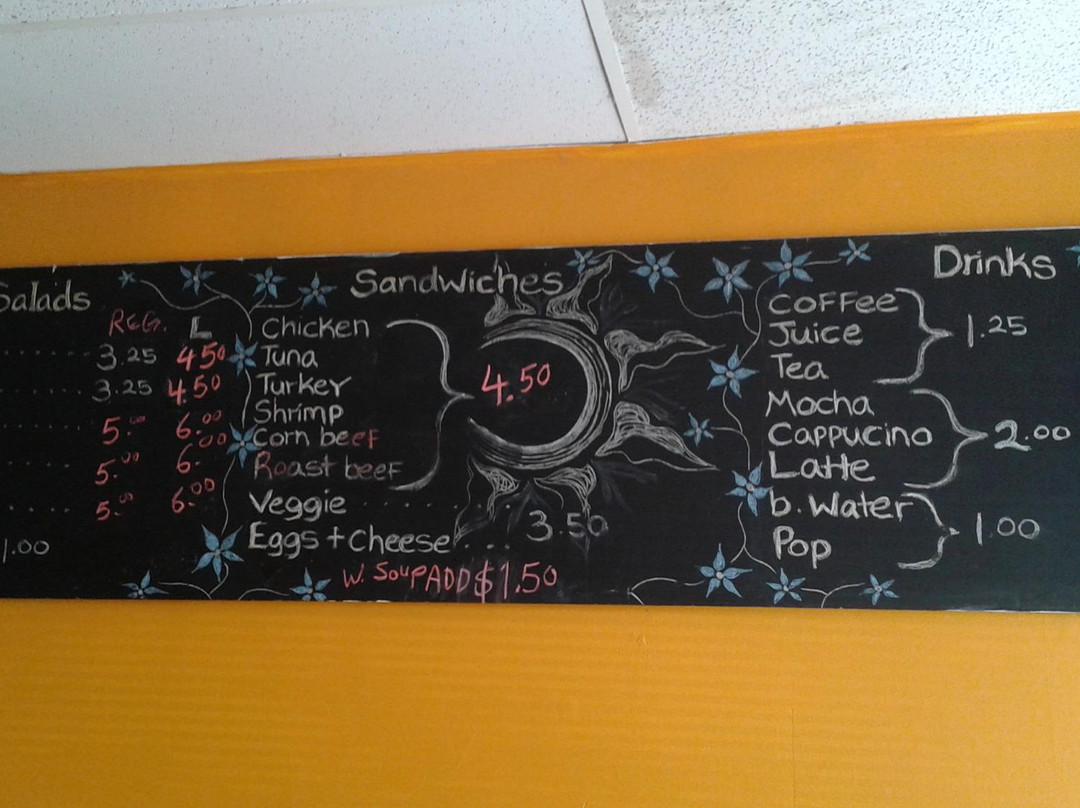 Salads
REG. L
3.25 4.50
3.25 4.50
5.00 6.00
5.00 6.00
5.00 6.00
1.00
Sandwiches
Chicken
Tuna
Turkey
Shrimp
Corn beef
Roast beef
4.50
Veggie . . . . . . . .
Eggs + Cheese . . . 3.50
W. Soup ADD $1.50
Drinks
Coffee
Juice
Tea
1.25
Mocha
Cappucino
Latte
2.00
b. Water
Pop
1.00